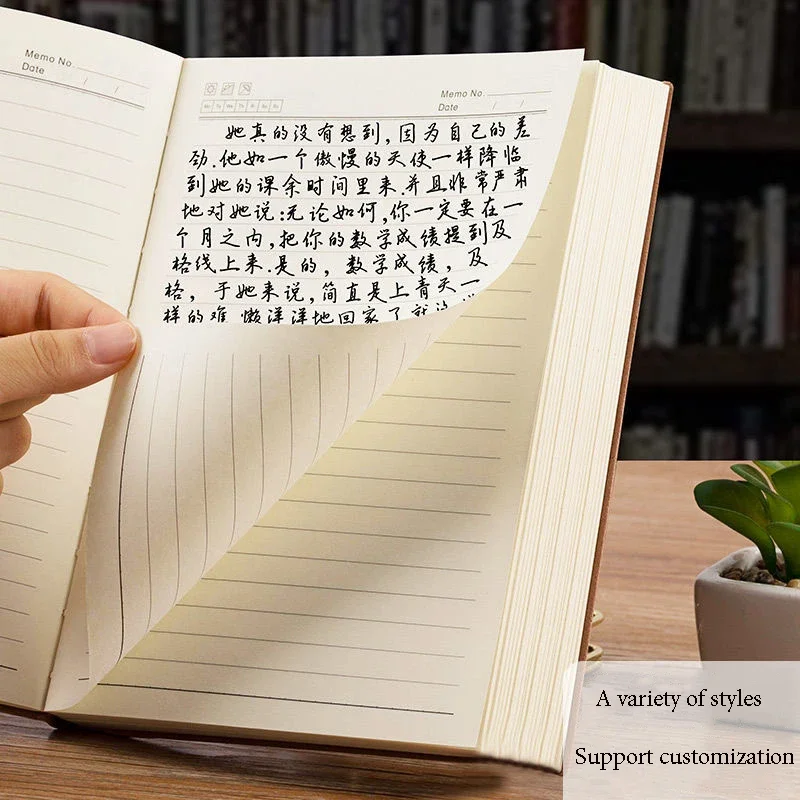 Memo No.
Date / /
Memo No.
Mo Tu We Th Fr Sa Su
Date / /
她真的没有想到,因为自己的差
劲.他如一个傲慢的天使一样降临
到她的课余时间里来.并且非常严肃
地对她说:无论如何,你一定要在一
个月之内,把你的数学成绩提到及
格线上来.是的，数学成绩，及
格，于她来说,简直是上青天一
样的难 懒洋洋地回家了
A variety of styles
Support customization